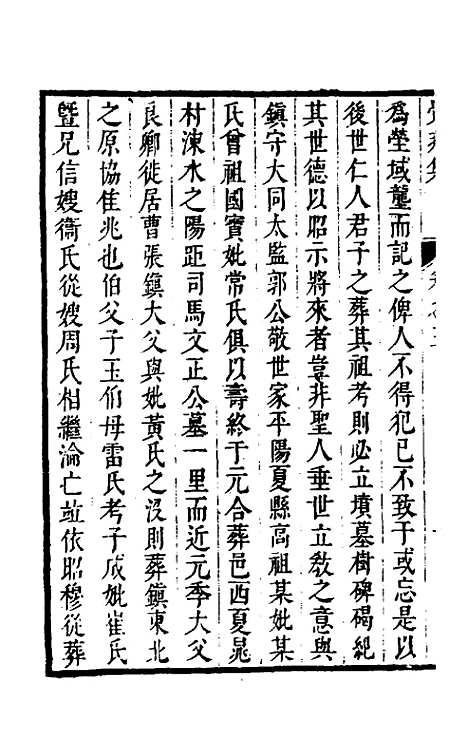 為塋域壟而記之俾人不得犯已不致于或忘是以
後世仁人君子之葬其祖考則必立墳墓樹碑碣紀
其世德以昭示將來者豈非聖人垂世立敎之意與
鎮守大同太監郭公敬世家平陽夏縣高祖某妣某
氏曾祖國賓妣常氏俱以壽終于元合葬邑西夏晁
村涑水之陽距司馬文正公墓一里而近元季大父
良卿徙居曹張鎮大父與妣黃氏之沒則葬鎮東北
之原協佳兆也伯父子玉伯母雷氏考子成妣崔氏
暨兄信嫂衞氏從嫂周氏相繼淪亡竝依昭穆從葬